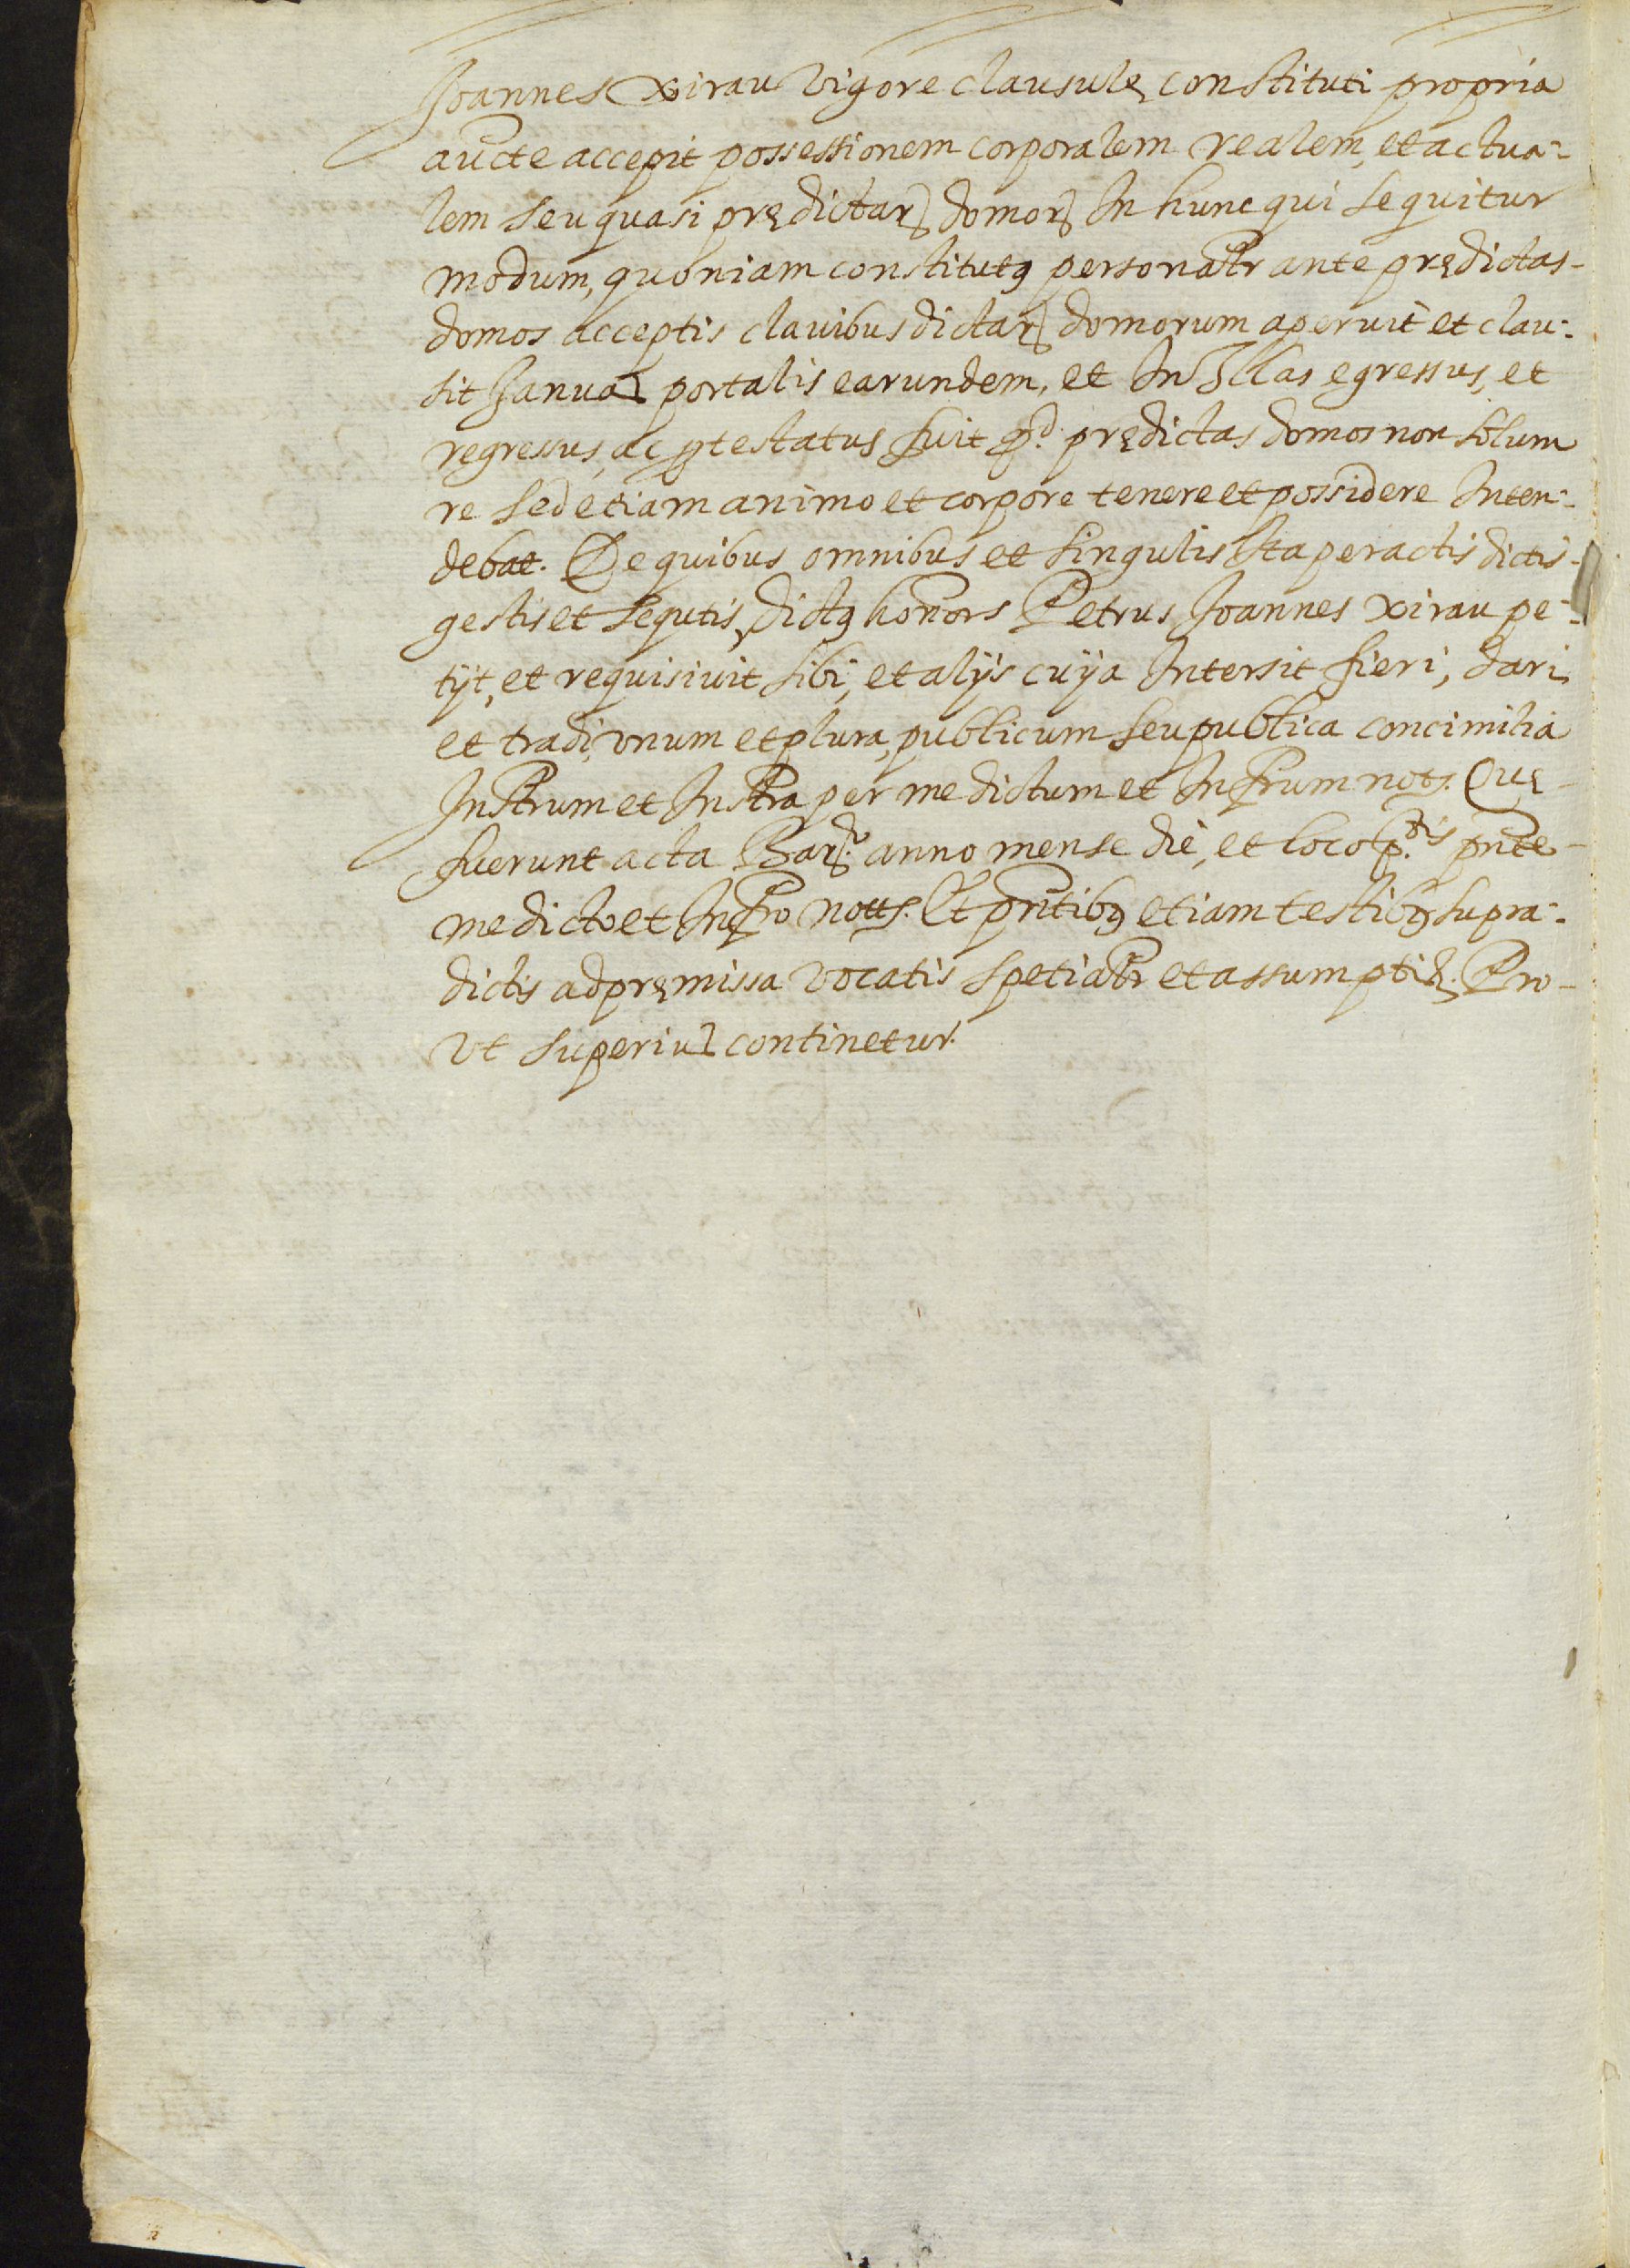 Joannes xirau vigore clausulę constituti propria
aucte accepit possessionem corporalem realem, et actua-
lem seu quasi prędictarꝝ domorꝝ In hunc qui sequitur
modum, quoniam constitutꝰ personalr ante prędictas
domos acceptis clauibus dictarꝝ domorum aperuit et clau-
sit Januas portalis earundem, et In Illas egressus, et
regressus, ac ꝓtestatus fuit qd. prędictas domos non solum
re sed etiam animo et corpore tenere et possidere Inten-
debat. De quibus omnibus et singulis Ita peractis dictis
gestis et sequtis, dictꝰ honors Petrus Joannes xirau pe-
tijt, et requisiuit sibi, et alijs cuija Intersit fieri, dari
et tradi, vnum et plura, publicum seu publica concimilia
Instrum et Instra per me dictum et Infrum nots. Quę
fuerunt acta Bar. anno mense die, et loco p.dis pnte
me dicto et Infro notts. Et pntibꝰ etiam testibꝰ supra-
dictis ad pręmissa vocatis spetialr et assumptis. Pro-
vt superius continetur.